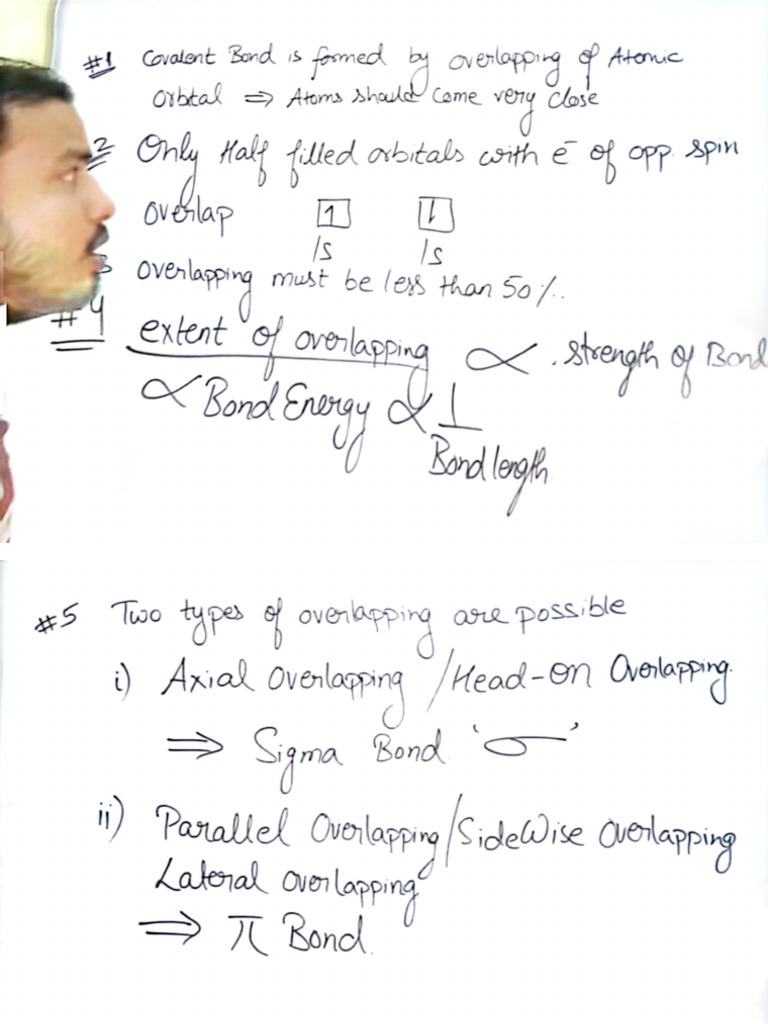 #1 Covalent Bond is formed by overlapping of Atomic
orbital ⇒ Atoms should come very close
2 Only Half filled orbitals with e⁻ of opp. spin
overlap 1 l
1s 1s
3 overlapping must be less than 50%.
#4 extent of overlapping ∝ . strength of Bond
∝ Bond Energy ∝ 1
Bond length
#5 Two types of overlapping are possible
i) Axial Overlapping / Head-on Overlapping.
⇒ Sigma Bond 'σ'
ii) Parallel Overlapping/SideWise Overlapping
Lateral overlapping
⇒ π Bond.